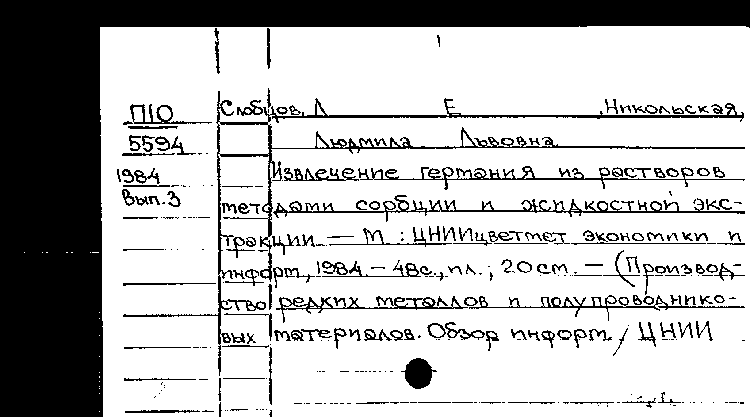 П10
5594
1984
Вып.3
Слобцов, Л Е ,Никольская,
Людмила Львовна
Извлечение германия из растворов
методами сорбции и жидкостной экс-
тракции. — М. : ЦНИИцветмет экономики и
информ., 1984. – 48с., ил.; 20 см. — (Производ-
ство редких металлов и полупроводнико-
вых материалов. Обзор. информ. / ЦНИИ